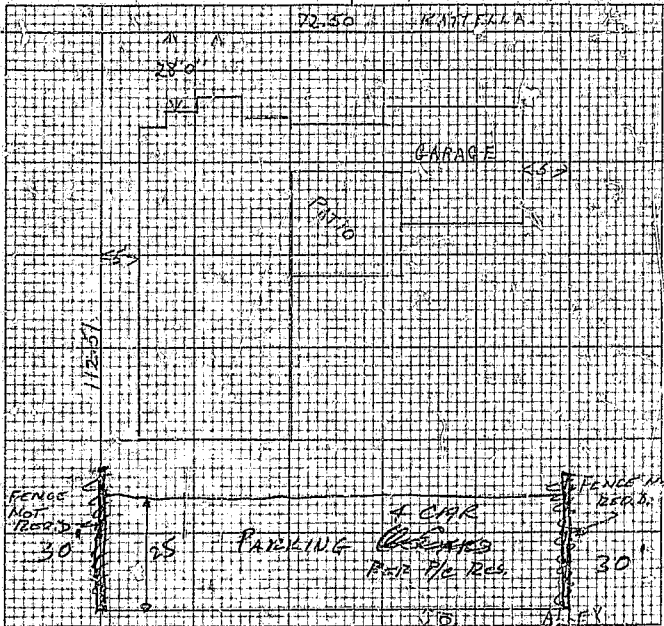 72.50
28'0"
GARAGE
<5>
PATIO
<5>
112.51
FENCE
NOT
REQ'D.
30'
25
PARKING
4 CAR
PER P/C RES.
FENCE N
REQ'D.
30'
ALLEY